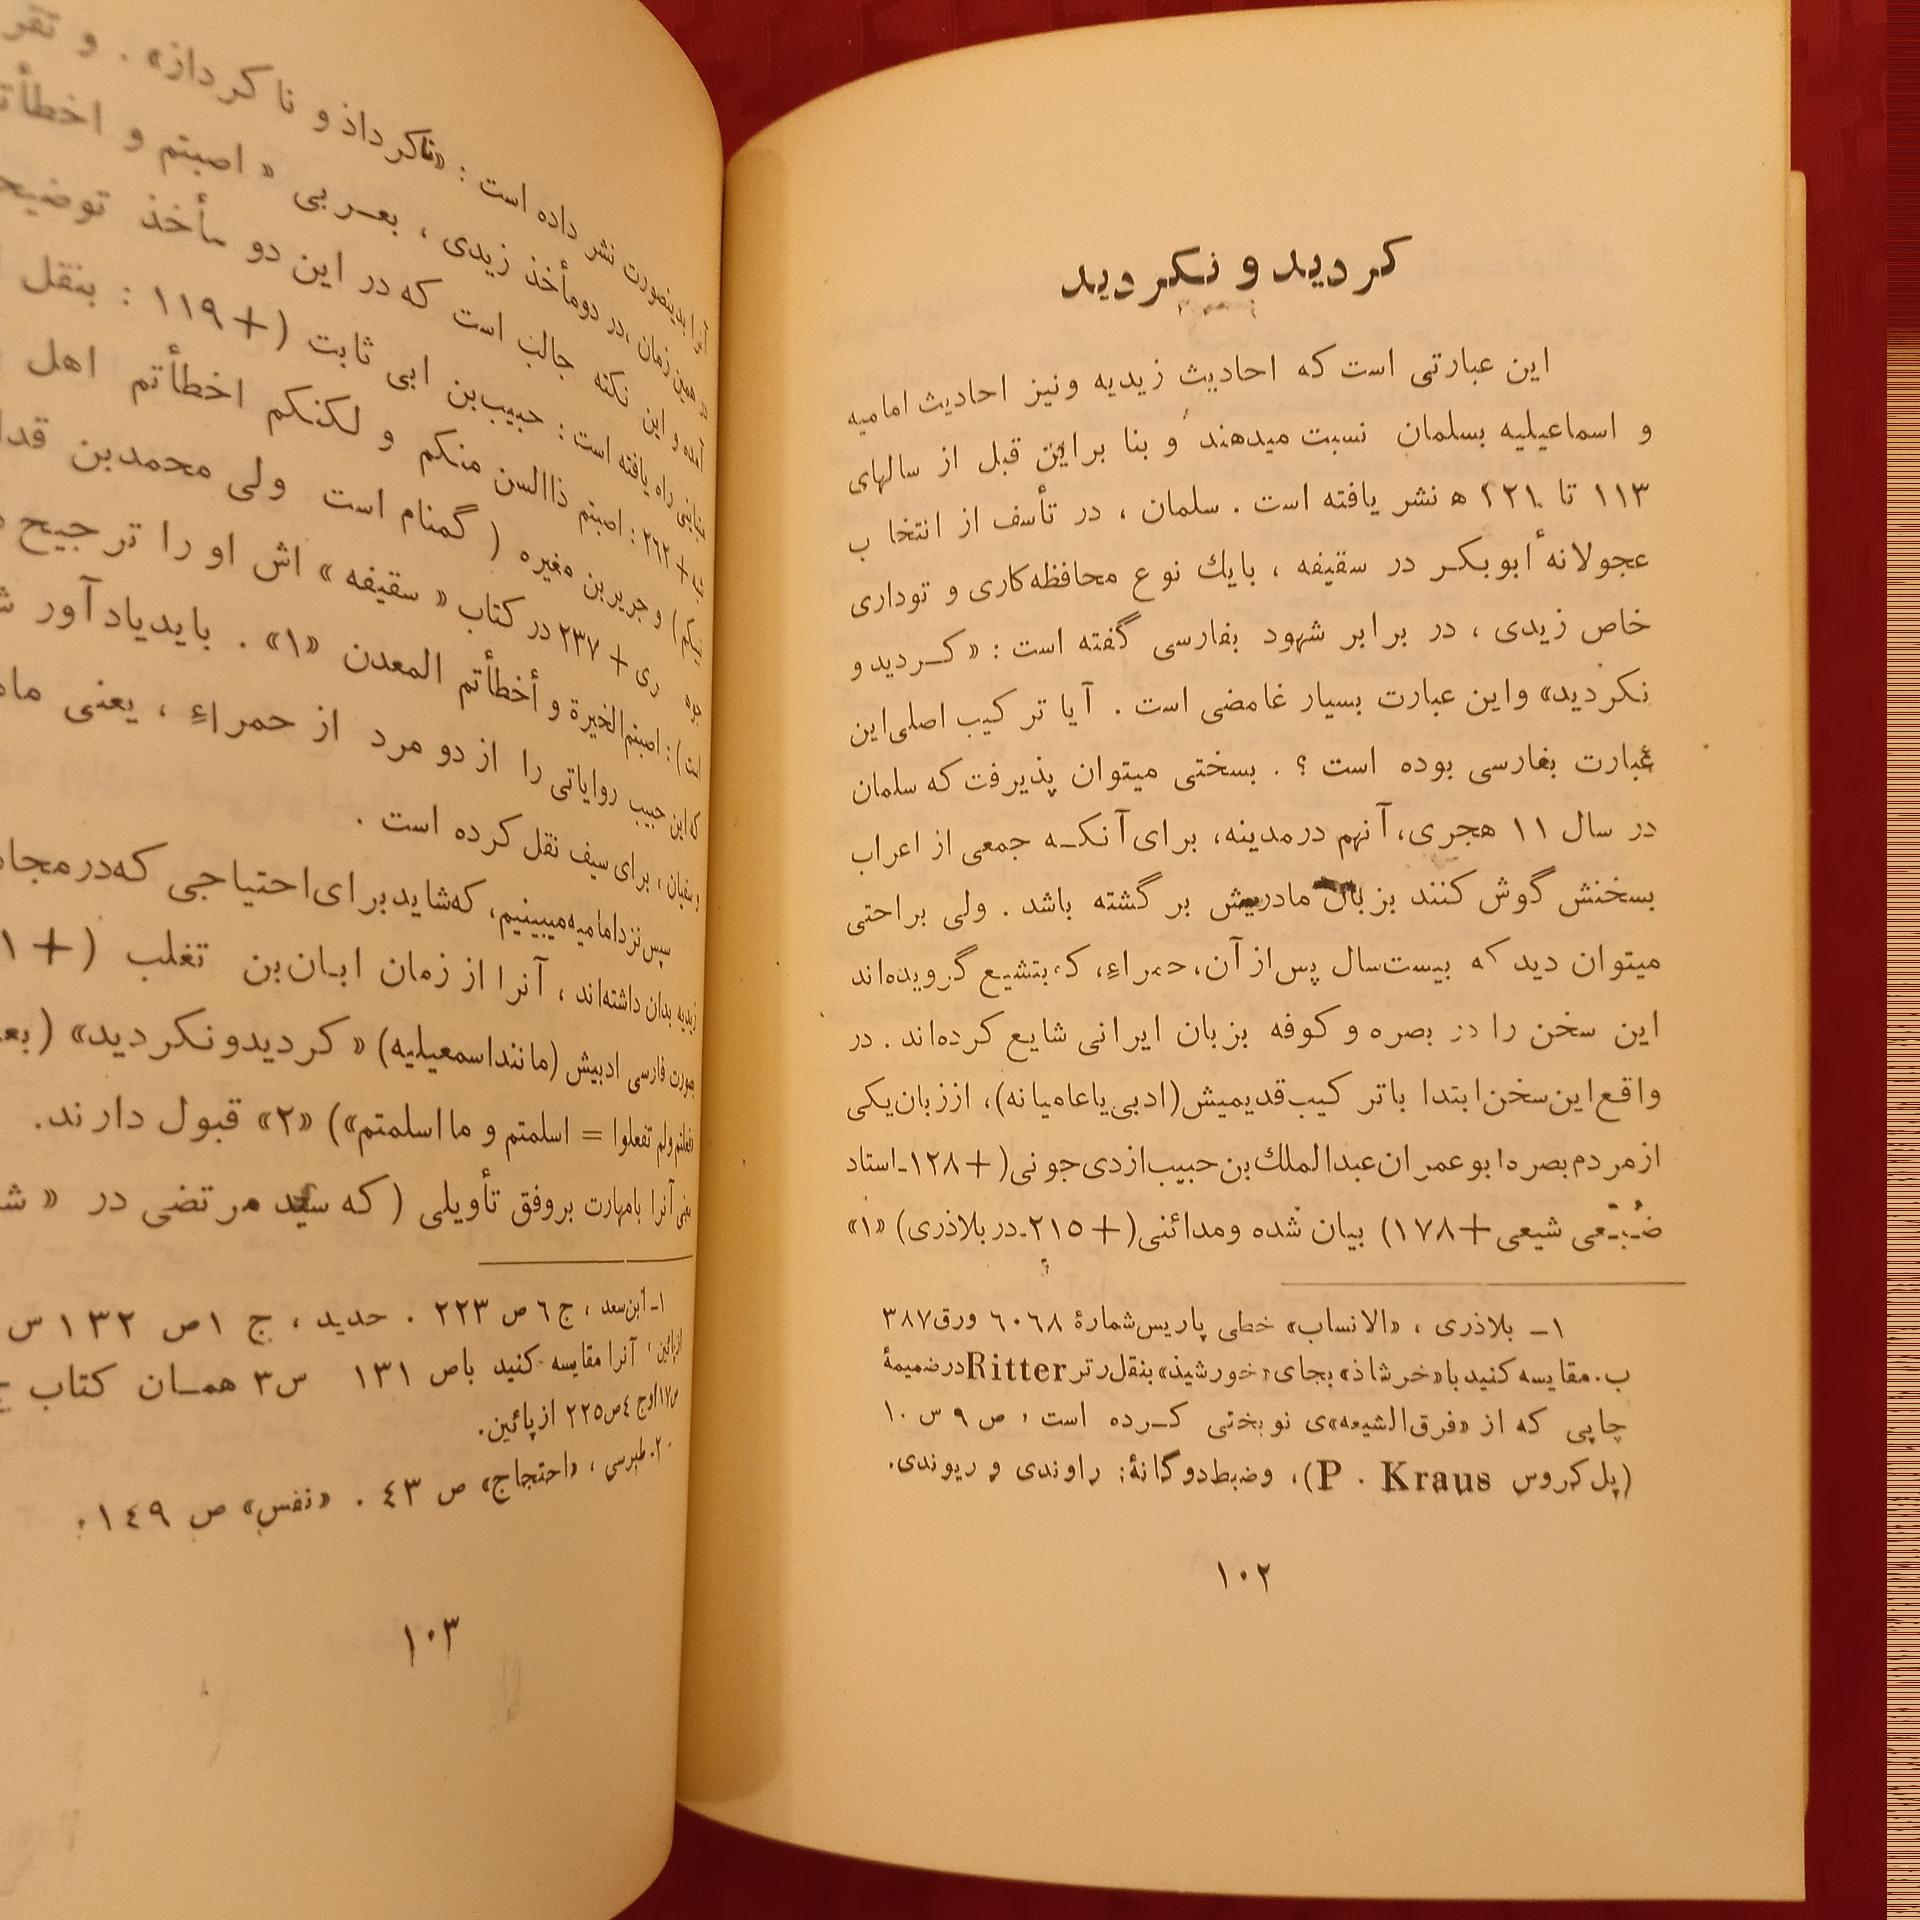 کردید و نکردید
این عبارتی است که احادیث زیدیه ونیز احادیث امامیه
و اسماعیلیه بسلمان نسبت میدهند و بنا براین قبل از سالهای
۱۱۳ تا ۲۲۱ ه نشر یافته است . سلمان ، در تأسف از انتخا ب
عجولانهٔ ابوبکر در سقیفه ، بایك نوع محافظه‌کاری و توداری
خاص زیدی ، در برابر شهود بفارسی گفته است : « کردید و
نکردید» واین عبارت بسیار غامضی است . آیا ترکیب اصلی‌این
عبارت بفارسی بوده است ؟ . بسختی میتوان پذیرفت که سلمان
در سال ۱۱ هجری، آنهم درمدینه، برای‌آنکه جمعی از اعراب
بسخنش گوش کنند بزبان مادریش برگشته باشد . ولی براحتی
میتوان دید که بیست‌سال پس‌از آن، حمراء، که بتشیع گرویده‌اند
این سخن را در بصره و کوفه بزبان ایرانی شایع کرده‌اند . در
واقع‌این‌سخن‌ابتدا باترکیب‌قدیمیش(ادبی‌یاعامیانه)، اززبان‌یکی
ازمردم‌بصره‌ابوعمران‌عبدالملك‌بن‌حبیب‌ازدی‌جونی(+۱۲۸ـ‌استاد
ضُبَعی شیعی+۱۷۸) بیان شده ومدائنی(+۲۱۵ـدربلاذری) «۱»
۱ـ بلاذری ، «الانساب» خطی پاریس‌شمارهٔ ۶۰۶۸ ورق۳۸۷
ب.مقایسه کنیدبا«خرشاذ» بجای«خورشید» بنقل‌رتر Ritter درضمیمهٔ
چاپی که از «فرق‌الشیعه»ی نوبختی کرده است ، ص ۹ س ۱۰
(پل‌کروس P . Kraus)، وضبط‌دوگانهٔ: راوندی و ریوندی.
۱۰۲
بدینصورت نشر داده است : «ناکرداذ و ناکرداز» . و تقر
در همین زمان ،در دومأخذ زیدی ، بعربی « اصبتم و اخطأ
آمده و این نکته جالب است که در این دو مأخذ توضیح
راه یافته است : حبیب‌بن ابی ثابت (+۱۱۹ : بنقل
+۲۶۲ : اصبتم ذاالسن منکم و لکنکم اخطأتم اهل
و جریربن مغیره ( گمنام است ولی محمدبن قدا
ری +۲۳۷ در کتاب « سقیفه » اش او را ترجیح
: اصبتم‌الخیرة و أخطأتم المعدن «۱» . بایدیادآور
که این حبیب روایاتی را از دو مرد از حمراء ، یعنی
و سفیان ، برای سیف نقل کرده است .
سپس‌نزدامامیه‌میبینیم، که‌شایدبرای‌احتیاجی که‌در
زیدیه بدان داشته‌اند ، آنرا از زمان ابان‌بن تغلب (+
صورت فارسی ادبیش (ماننداسمعیلیه) « کردیدونکردید» (
فعلتم‌ولم تفعلوا = اسلمتم و مااسلمتم») «۲» قبول دارند.
یعنی آنرا بامهارت بروفق تأویلی ( که سید مرتضی در «
۱ـ ابن‌سعد ، ج ۶ ص ۲۲۳ . حدید ، ج ۱ص ۱۳۲ س
ازپائین ، آنرا مقایسه کنید باص ۱۳۱ س۳ همان کتاب
س۱۷ وج ۴ص۲۲۵ ازپائین.
۲ـ طبرسی ، «احتجاج» ص ۴۳ . «نفس» ص ۱۴۹.
۱۰۳